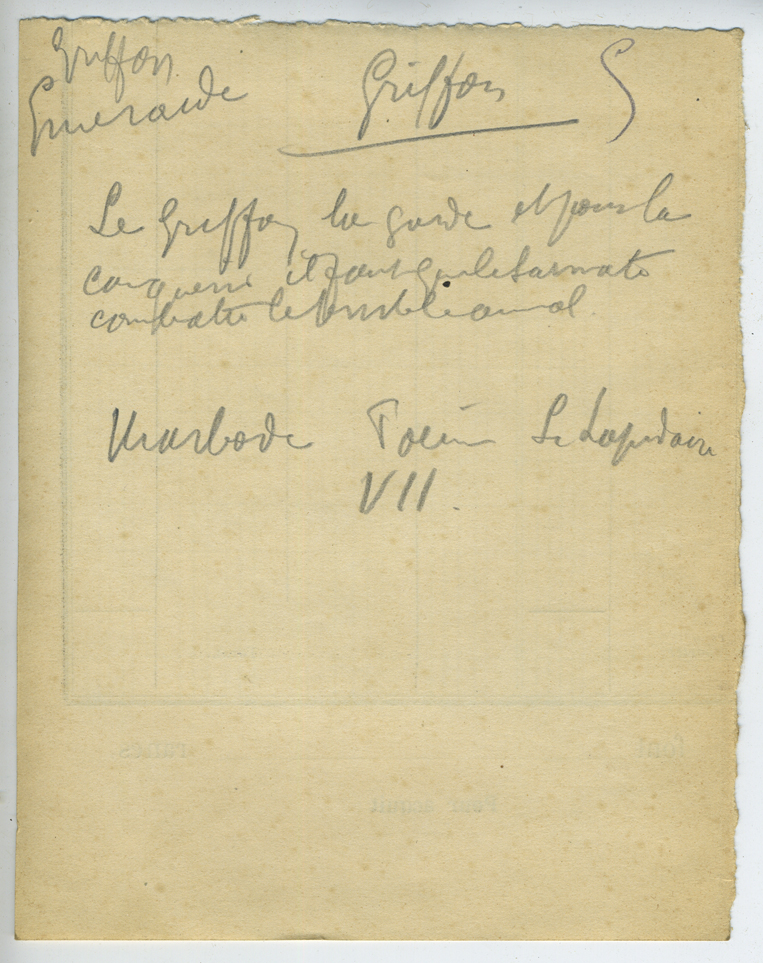 Griffon
Émeraude
Griffon
Le Griffon la garde et pour la
conquérir il faut que le Sarmate
combatte le terrible animal.
Marbode Poème Le Lapidaire
VII